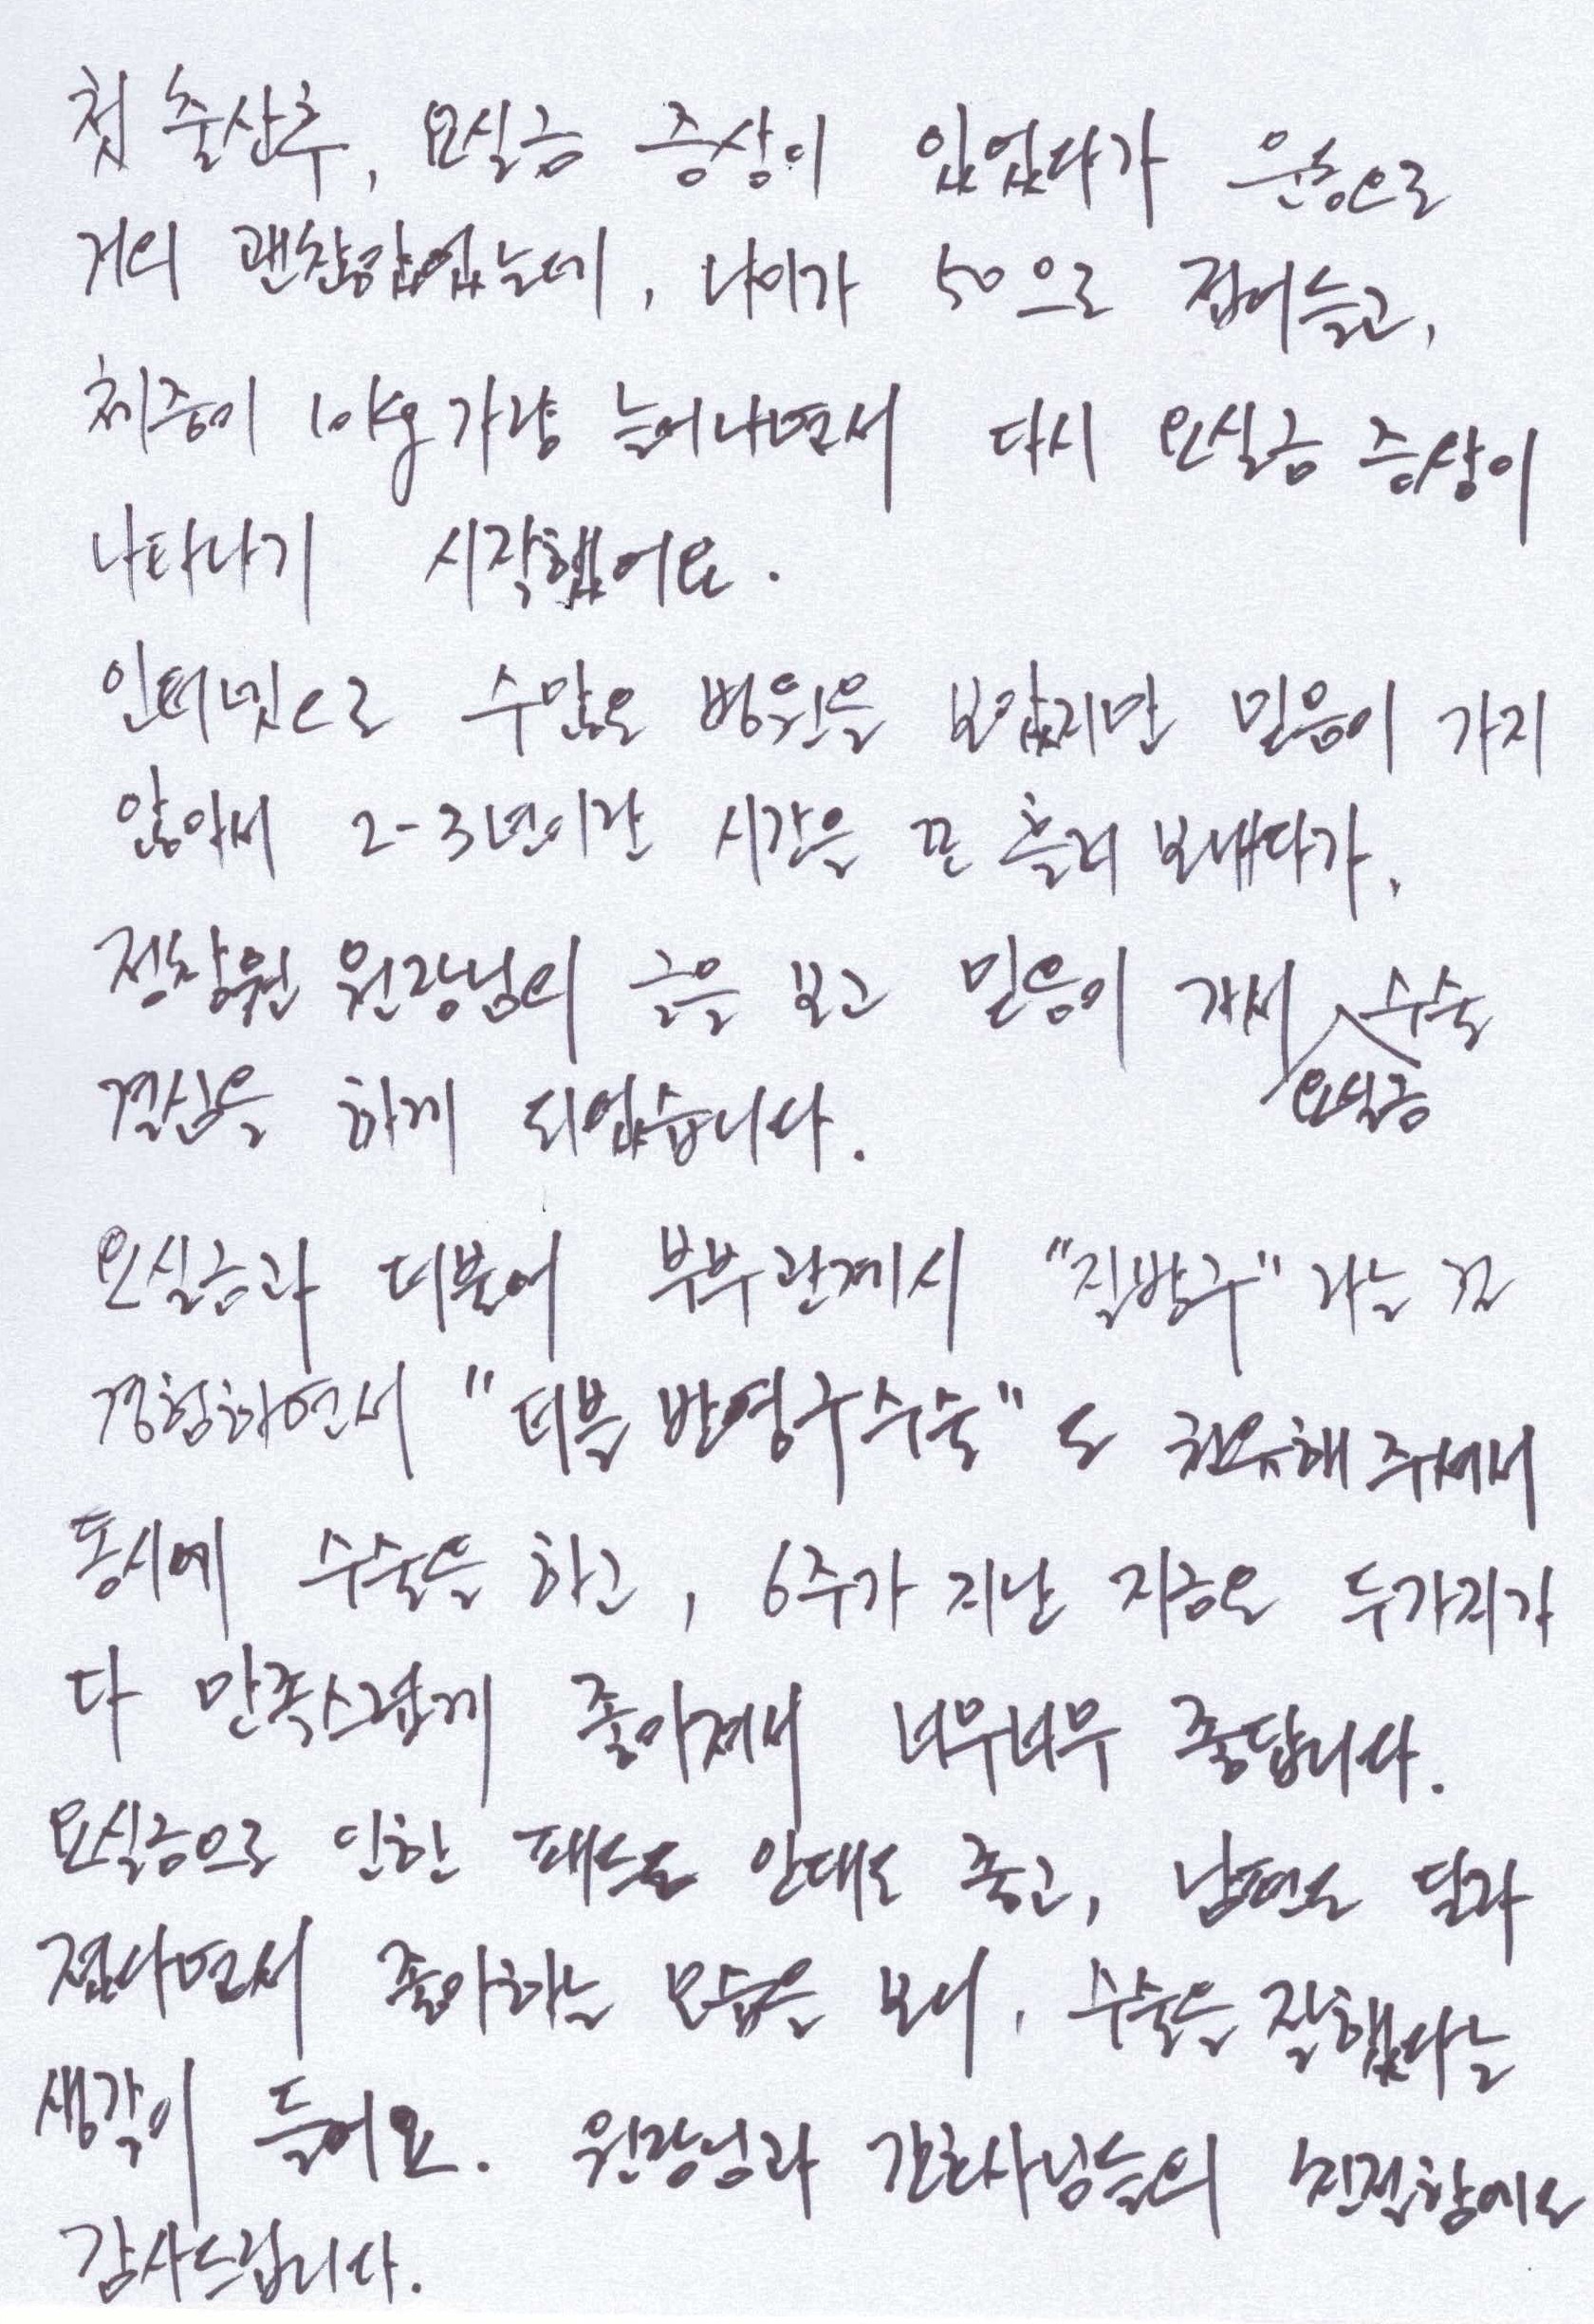 첫 출산후, 요실금 증상이 있었다가 운동으로
거의 괜찮았었는데, 나이가 50으로 접어들고,
체중이 10kg가량 늘어나면서 다시 요실금 증상이
나타나기 시작했어요.
인터넷으로 수많은 병원을 보았지만 믿음이 가지
않아서 2-3년이란 시간을 흘려 보내다가,
정창원 원장님의 글을 보고 믿음이 가서 요실금 수술
결심을 하게 되었습니다.
요실금과 더불어 부부관계시 "질방구" 라는 걸
경험하면서 "더블 반영구수술" 도 권유해 주셔서
동시에 수술을 하고, 6주가 지난 지금은 두가지가
다 만족스럽게 좋아져서 너무너무 좋답니다.
요실금으로 인한 패드도 안대도 좋고, 남편도 달라
졌다면서 좋아하는 모습을 보니, 수술을 잘했다는
생각이 들어요. 원장님과 간호사님들의 친절함에도
감사드립니다.